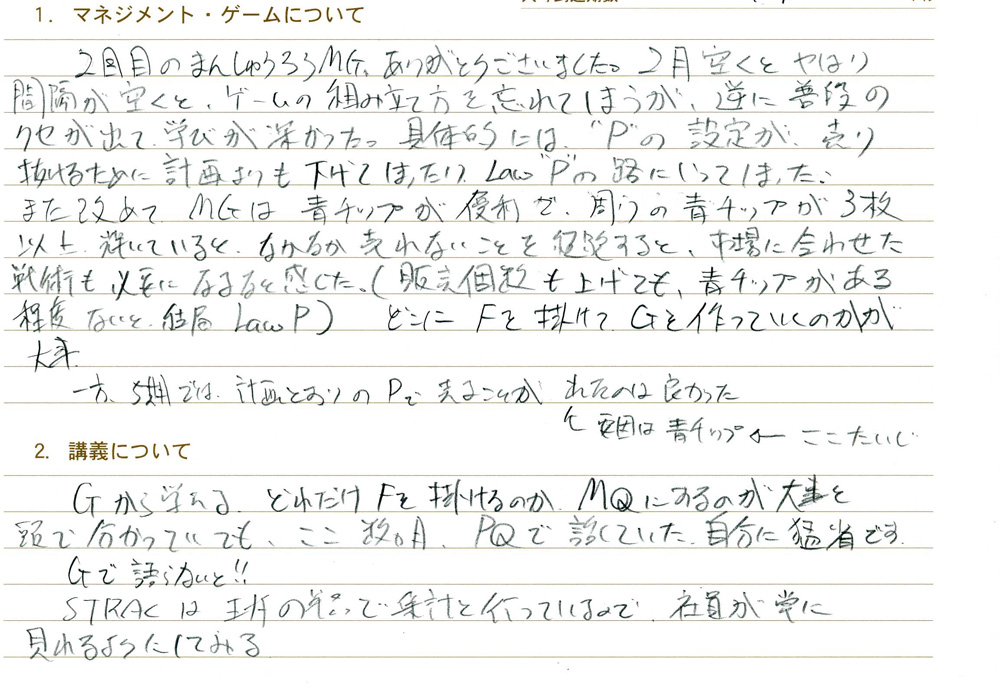 1. マネジメント・ゲームについて
2回目のまんしゅうろうMG、ありがとうございました。2月空くとやはり
間隔が空くと、ゲームの組み立て方を忘れてしまうが、逆に普段の
クセが出て、学びが深かった。具体的には、"P"の設定が、売り
抜けるために計画よりも下げてしまったり、Law "P"の路にいってしまった、
また改めて、MGは青チップが優利で、周りの青チップが3枚
以上、輝いていると、なかなか売れないことを経験すると、市場に合わせた
戦術も必要になると感じた。(販売個数も上げても、青チップがある
程度ないと、結局 Law P) どこにFを掛けて、Gを作っていくのかが
大事。
一方、5期では、計画どおりのPで売ることが れたのは良かった
要因は青チップ← ここだいじ
2. 講義について
Gから考える、どれだけFを掛けるのか、MQにするのが大事と
頭で分かっていても、ここ数ヶ月、PQで話していた、自分に猛省です。
Gで語らないと!!
STRACは で集計を行っているので、社員が常に
見れるようにしてみる